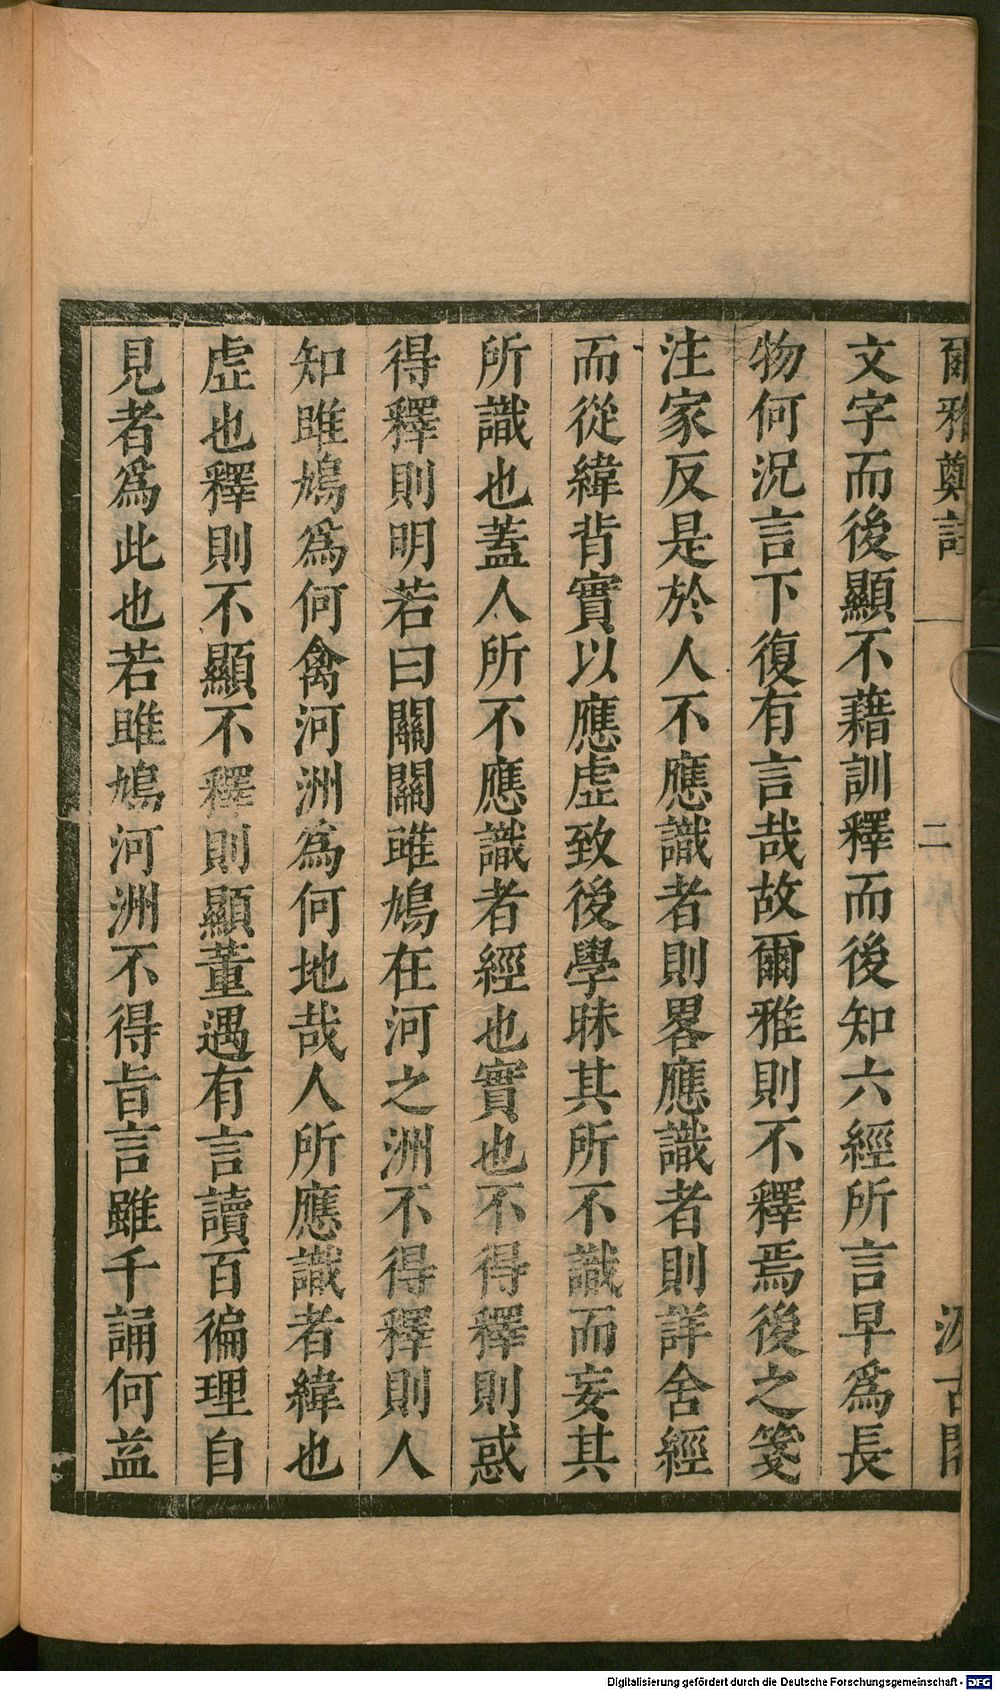 爾雅鄭註
二
汲古閣
文字而後顯不藉訓釋而後知六經所言早為長
物何況言下復有言哉故爾雅則不釋焉後之箋
注家反是於人不應識者則畧應識者則詳舍經
而從緯背實以應虛致後學昧其所不識而妄其
所識也蓋人所不應識者經也實也不得釋則惑
得釋則明若曰關關雎鳩在河之洲不得釋則人
知雎鳩為何禽河洲為何地哉人所應識者緯也
虛也釋則不顯不釋則顯董遇有言讀百徧理自
見者為此也若雎鳩河洲不得旨言雖千誦何益
Digitalisierung gefördert durch die Deutsche Forschungsgemeinschaft - DFG